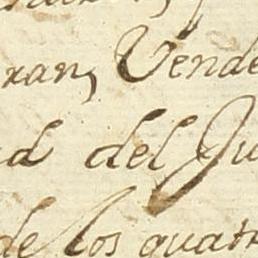 ran, Vende
d del Ju
de los quatr